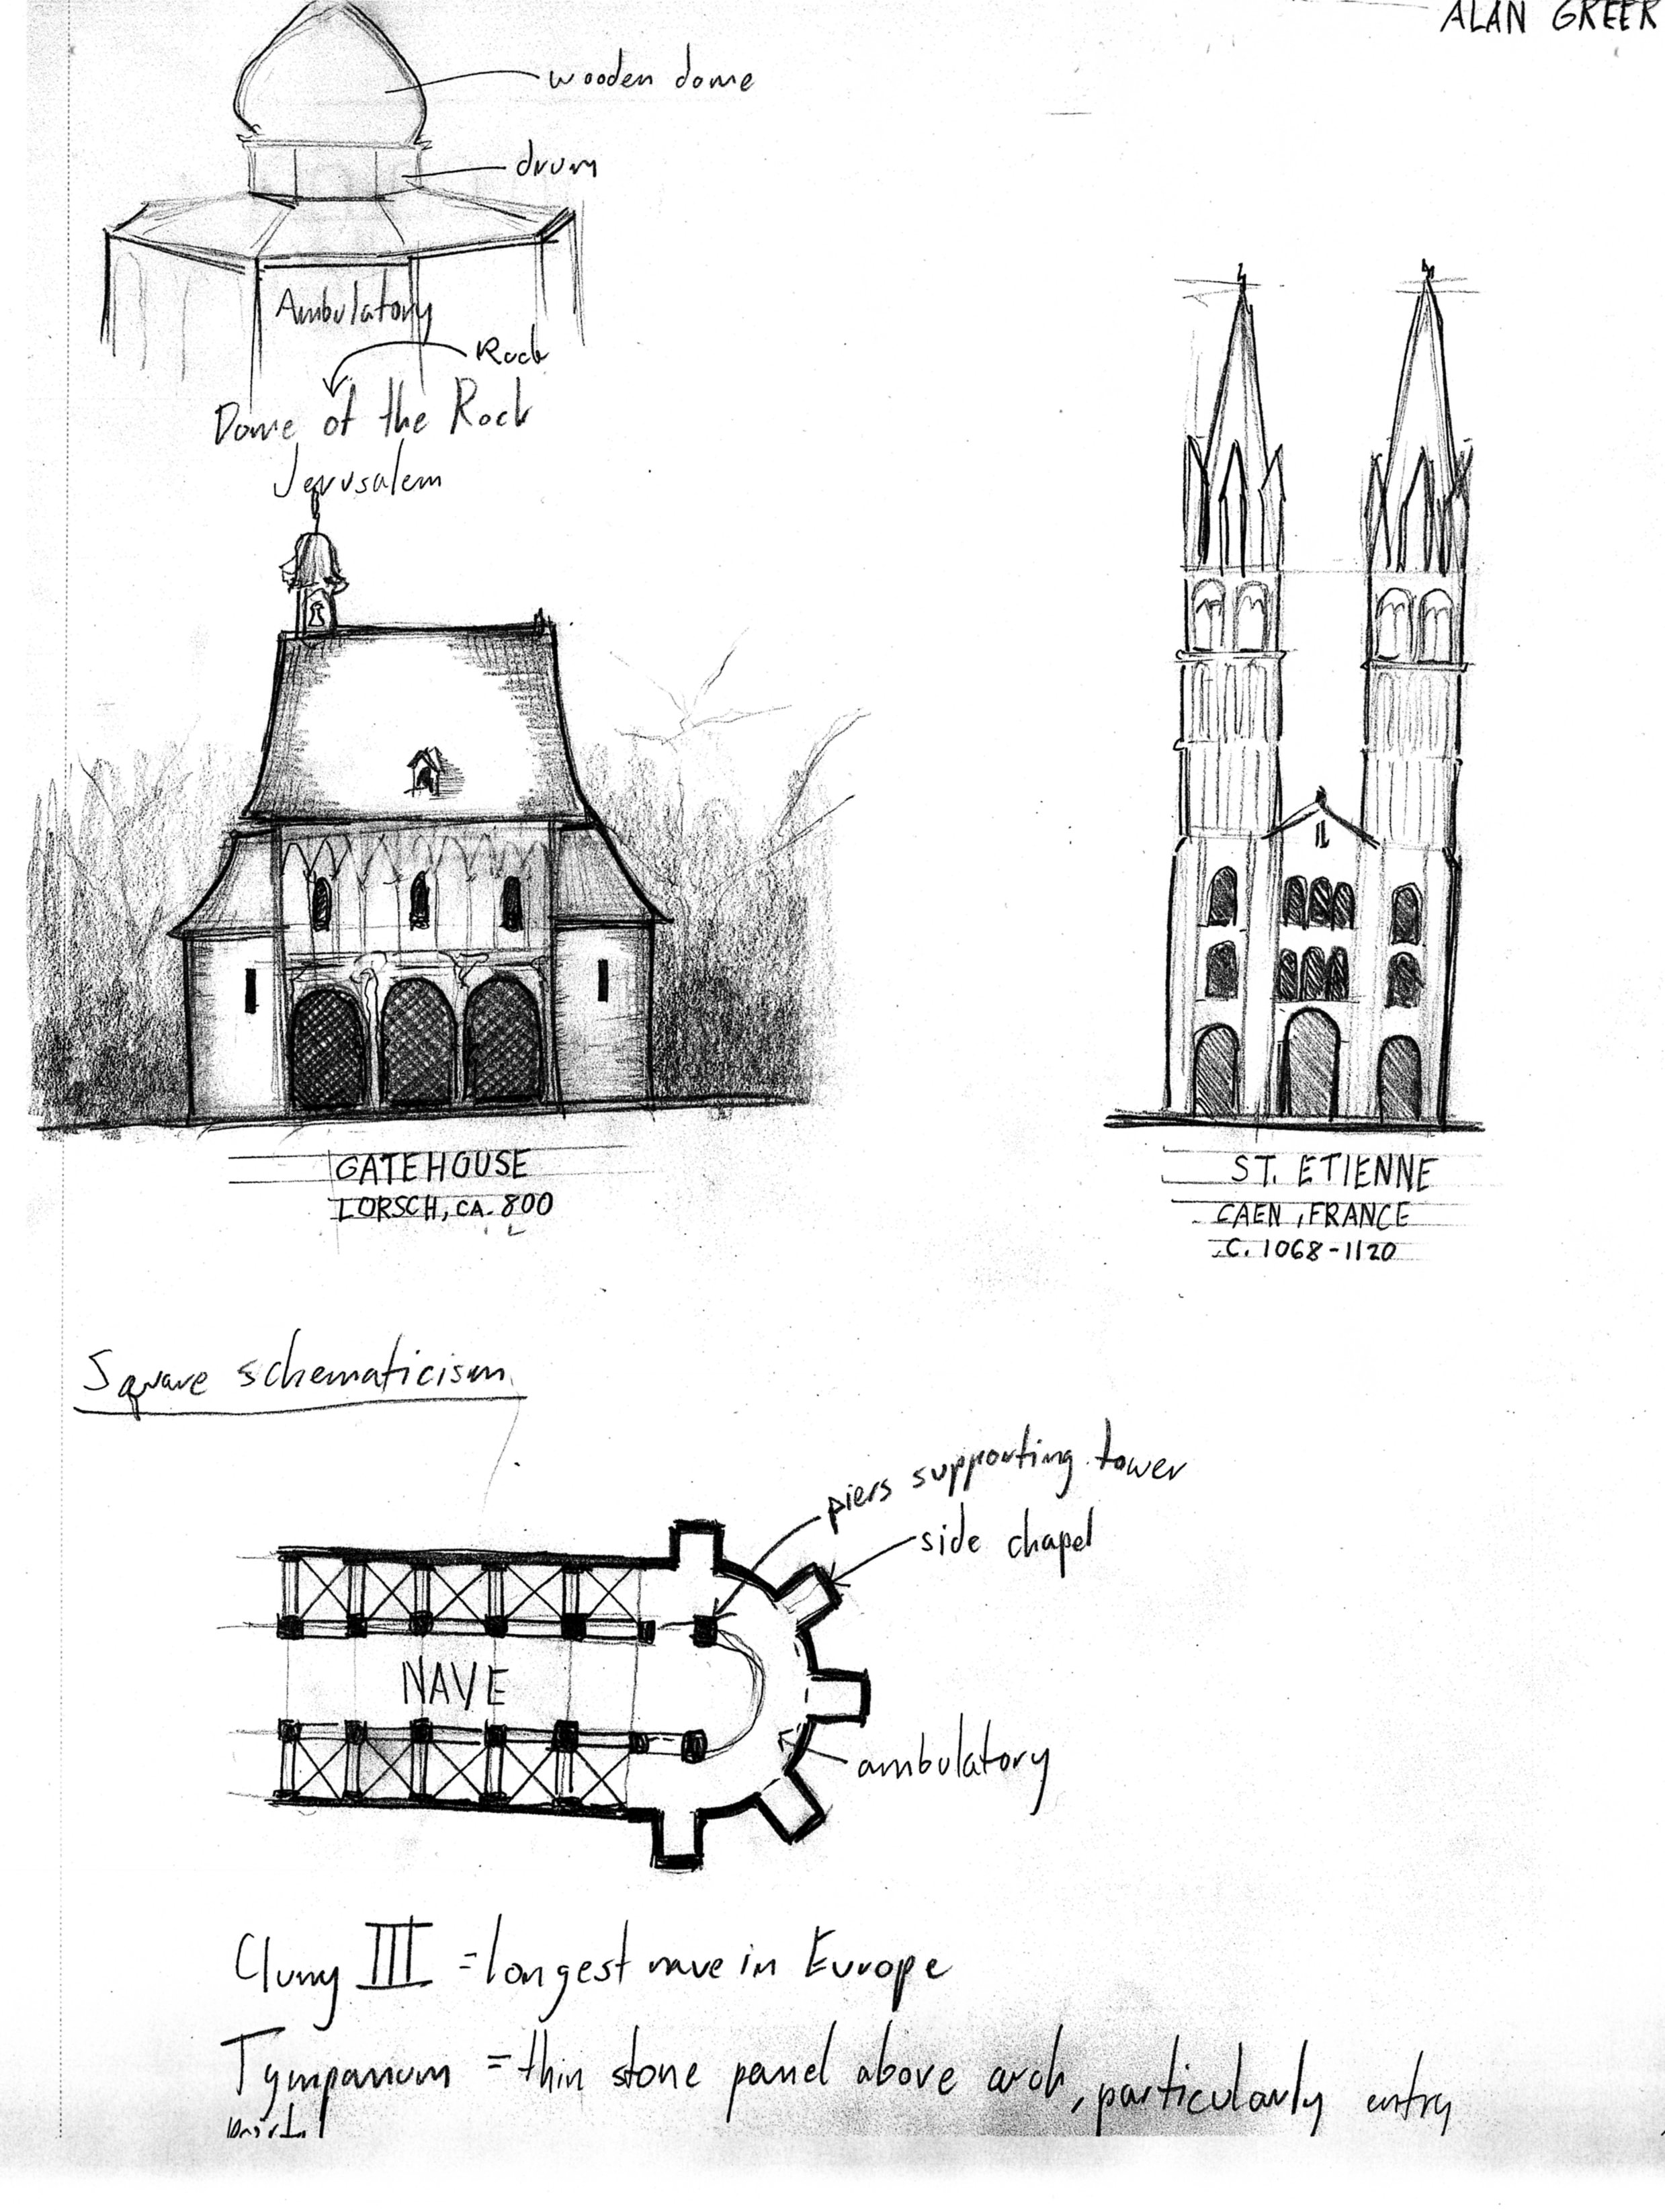 ALAN GREER
wooden dome
drum
Ambulatory
Rock
Dome of the Rock
Jerusalem
GATEHOUSE
LORSCH, CA. 800
ST. ETIENNE
CAEN, FRANCE
C. 1068-1120
Square schematicism
piers supporting tower
side chapel
NAVE
ambulatory
Cluny III = longest nave in Europe
Tympanum = thin stone panel above arch, particularly entry